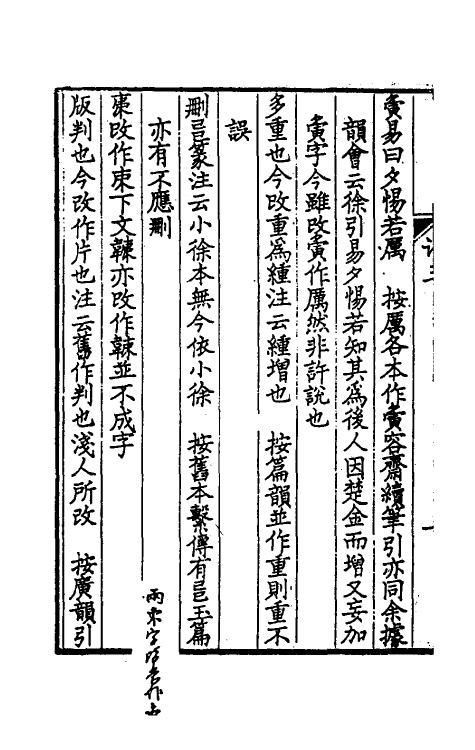 夤易曰夕惕若厲　按厲各本作夤容齋續筆引亦同余據
韻會云徐引易夕惕若知其爲後人因楚金而增又妄加
夤字今雖改夤作厲然非許説也
多重也今改重爲緟注云緟增也　按篇韻並作重則重不
誤
刪㠯篆注云小徐本無今依小徐　按舊本繫傳有㠯玉篇
亦有不應刪
棗改作朿下文𣗥亦改作𣗥並不成字
版判也今改作片也注云舊作判也淺人所改　按廣韻引
兩朿字